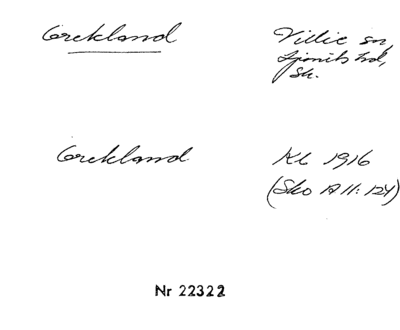 Grekland
Villie sn,
Ljunits hd,
Sk.
Grekland
Kl 1916
(Sko A 11: 124)
Nr 22322